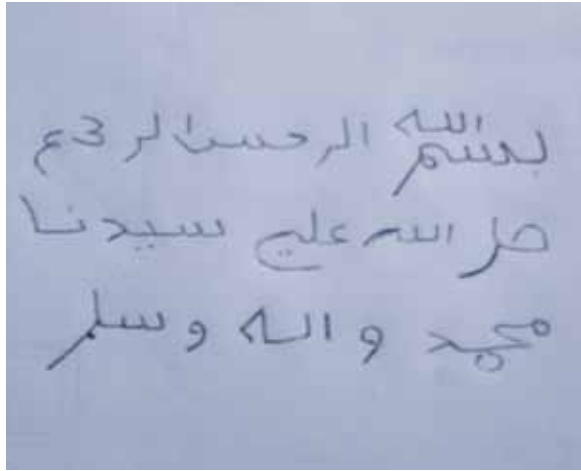 بسم الله الرحمن الرحيم
صل الله علي سيدنا
محمد واله وسلم